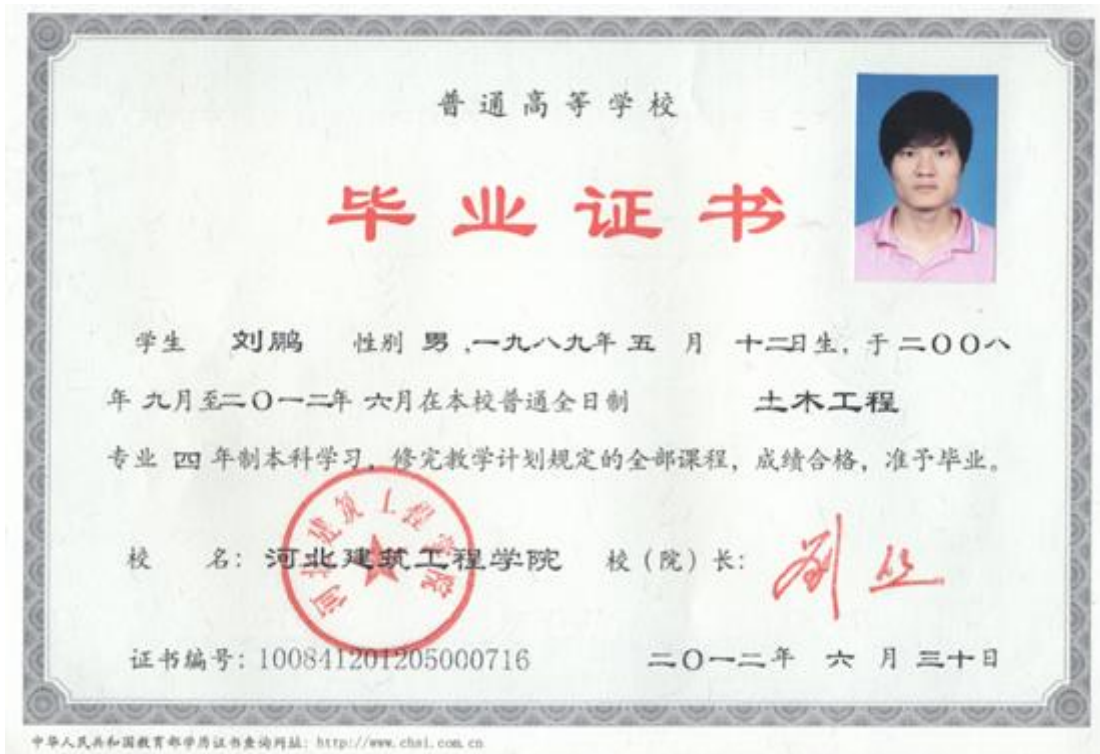 普通高等学校
毕业证书
学生 刘鹏 性别 男,一九八九年 五 月 十二日生,于二〇〇八
年 九月至二〇一二年 六月在本校普通全日制 土木工程
专业 四 年制本科学习,修完教学计划规定的全部课程,成绩合格,准予毕业。
河北建筑工程学院
校 名:河北建筑工程学院 校(院)长:
证书编号:100841201205000716 二〇一二年 六 月 三十日
中华人民共和国教育部学历证书查询网址:http://www.chsi.com.cn